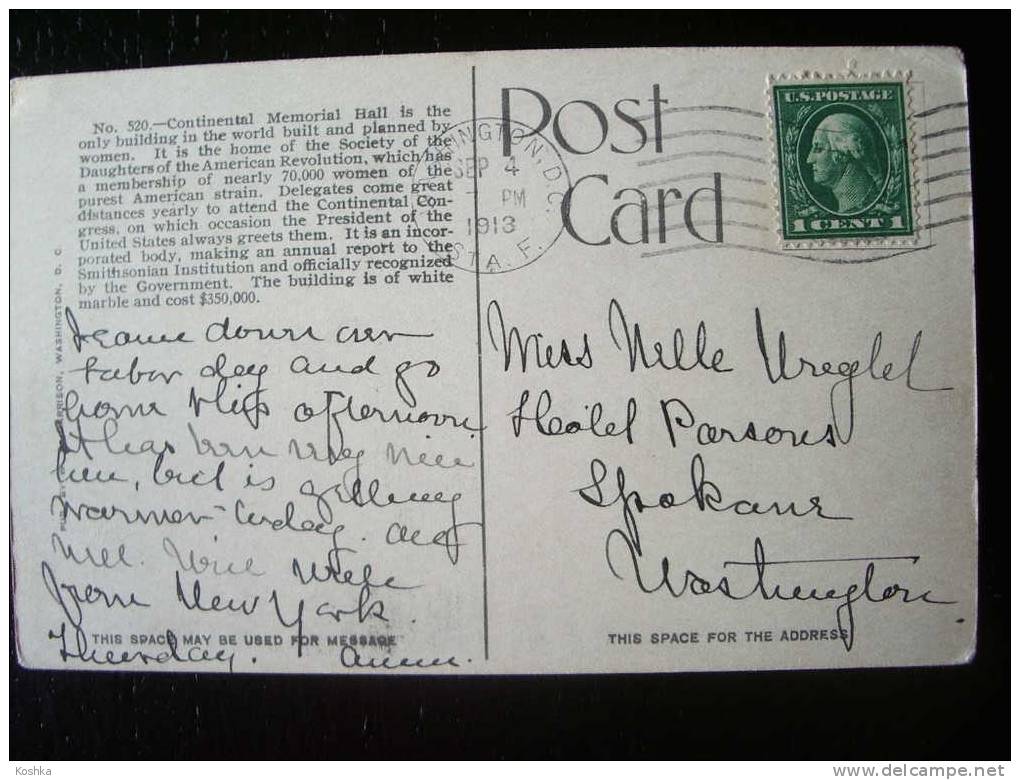 No. 520.—Continental Memorial Hall is the
only building in the world built and planned by
women. It is the home of the Society of the
Daughters of the American Revolution, which has
a membership of nearly 70,000 women of the
purest American strain. Delegates come great
distances yearly to attend the Continental Con-
gress, on which occasion the President of the
United States always greets them. It is an incor-
porated body, making an annual report to the
Smithsonian Institution and officially recognized
by the Government. The building is of white
marble and cost $350,000.
Post
Card
INGTON, D.C.
SEP 4
PM
1913
STA. F.
U.S. POSTAGE
1 CENT 1
RRISON, WASHINGTON, D. C
I came down over
Labor day and go
home this afternoon.
It has been very nice
here, but is getting
warmer today. All
well. Will write
from New York.
Thursday.
THIS SPACE MAY BE USED FOR MESSAGE
Miss Nelle
Hotel Parsons
Spokane
Washington.
THIS SPACE FOR THE ADDRESS
Koshka
delcampe.net